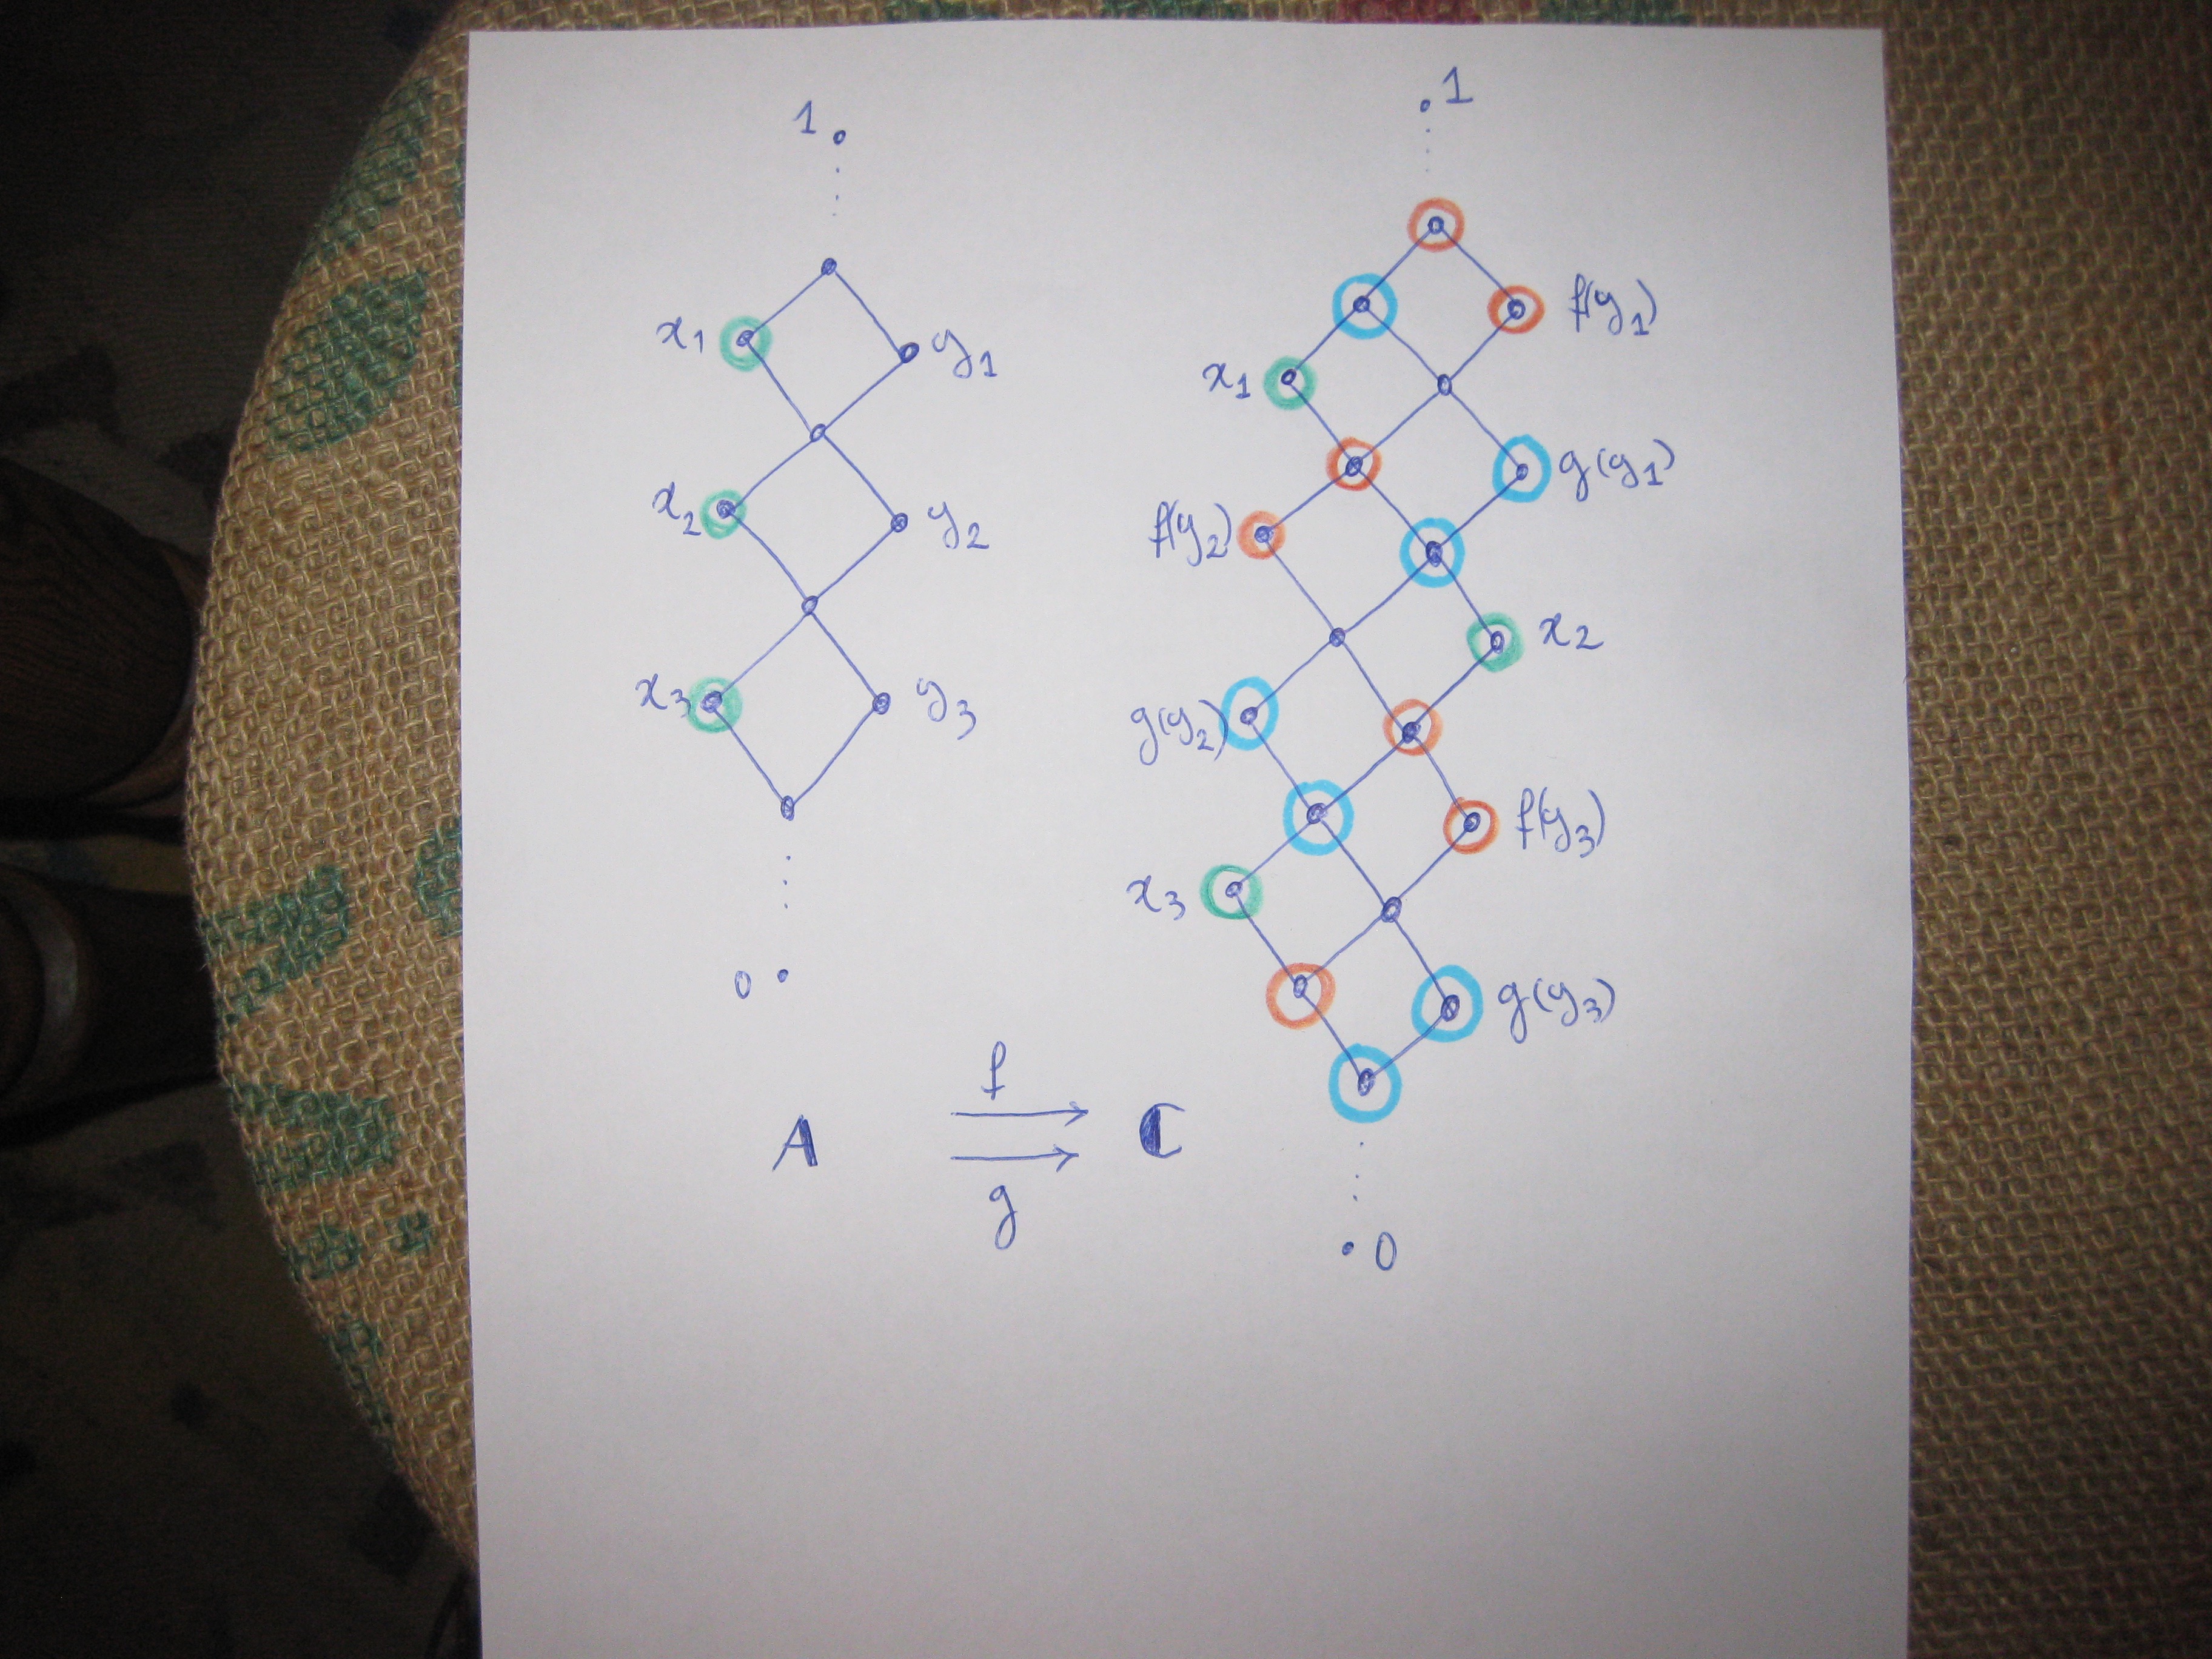 1
x₁
y₁
x₂
y₂
x₃
y₃
0
A
f
g
ℂ
1
f(y₁)
x₁
g(y₁)
f(y₂)
x₂
g(y₂)
f(y₃)
x₃
g(y₃)
0